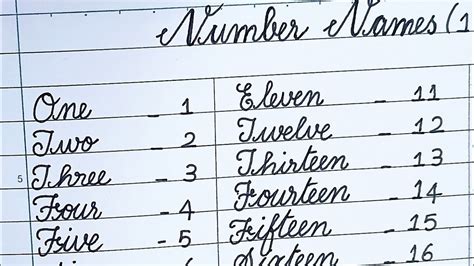 Number Names (1
One - 1 Eleven - 11
Two - 2 Twelve - 12
5 Three - 3 Thirteen - 13
Four - 4 Fourteen - 14
Five - 5 Fifteen - 15
Sixteen - 16